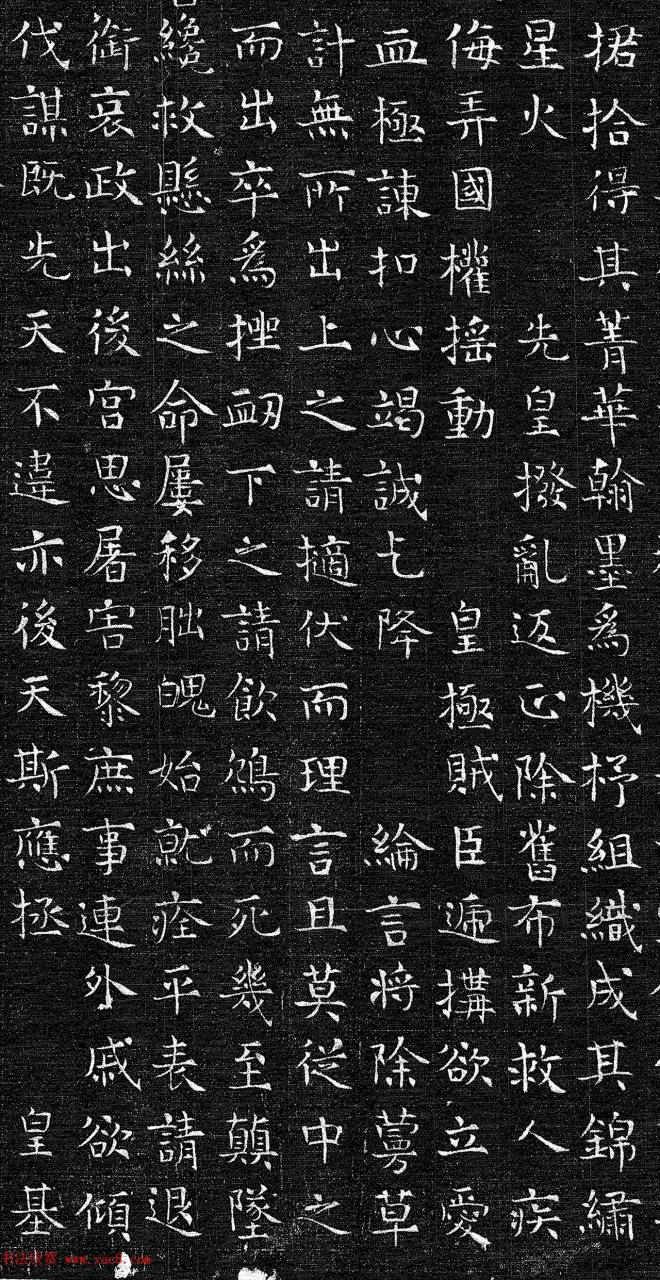 捃拾得其菁華翰墨爲機杼組織成其錦繡
星火 先皇撥亂返正除舊布新救人疾
侮弄國權搖動 皇極賊臣遞搆欲立愛
血極諫扣心竭誠乞降 綸言將除蔓草
計無所出上之請擿伏而理言且莫從中之
而出卒爲挫衄下之請飲鴆而死幾至顛墜
纔救懸絲之命屢移朏魄始就痊平表請退
銜哀政出後宮思屠害黎庶事連外戚欲傾
伐謀既先天不違亦後天斯應拯 皇基
书法欣赏 www.yac8.com